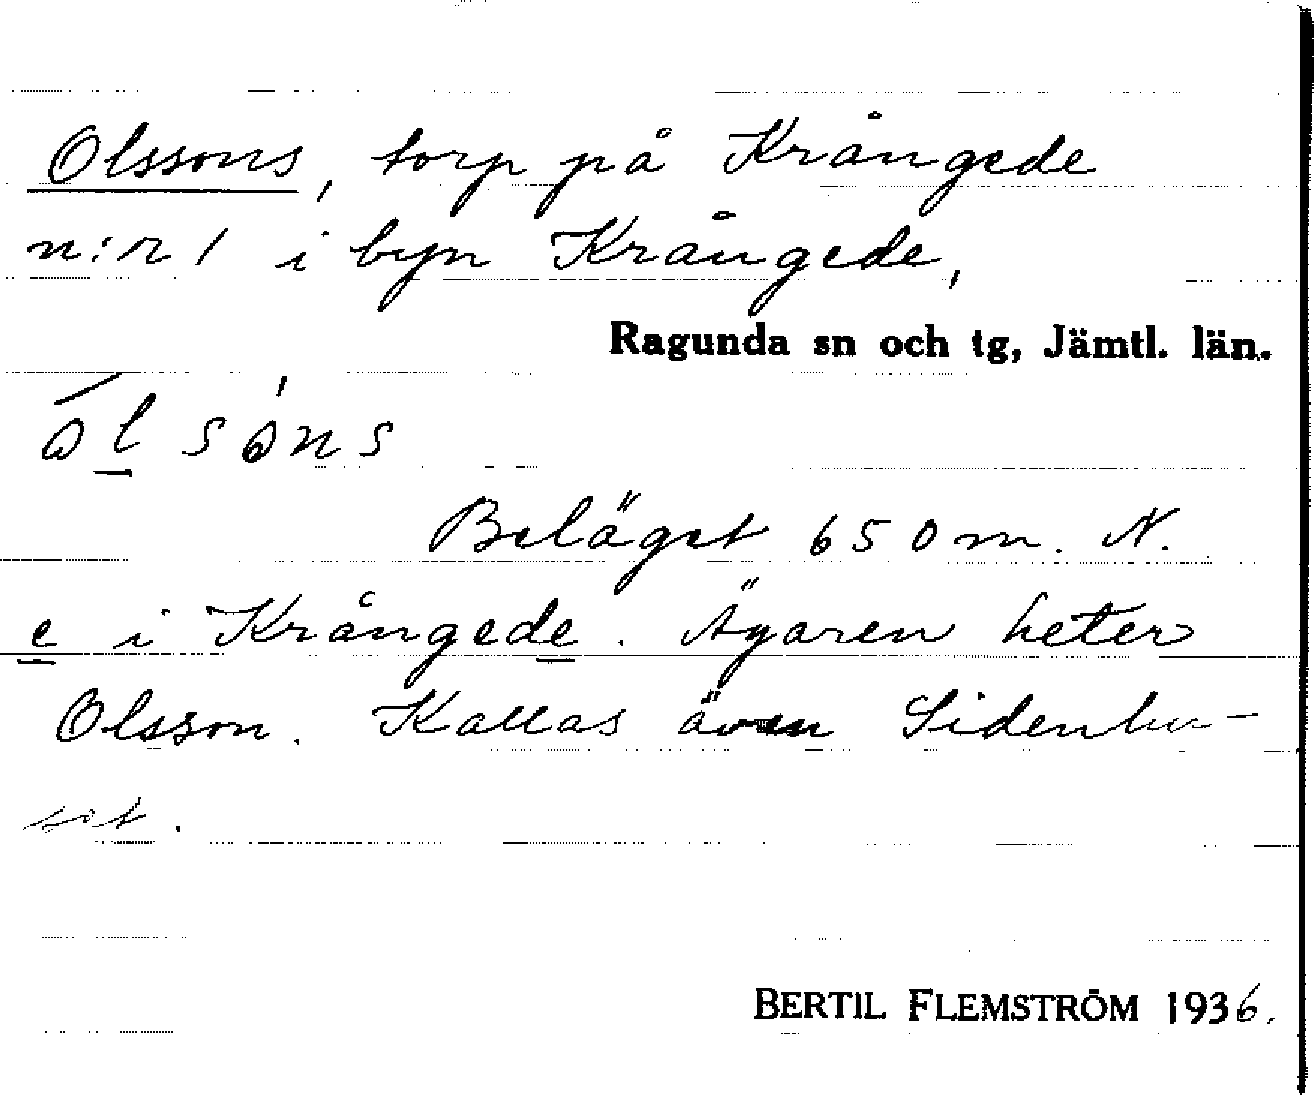 Olssons, torp på Krångede
n:r 1 i byn Krångede,
Ragunda sn och tg, Jämtl. län.
ólsòns
Beläget 650 m. N.
e i Krångede. Ägaren heter
Olsson. Kallas även Sidenhu-
set.
BERTIL FLEMSTRÖM 1936.